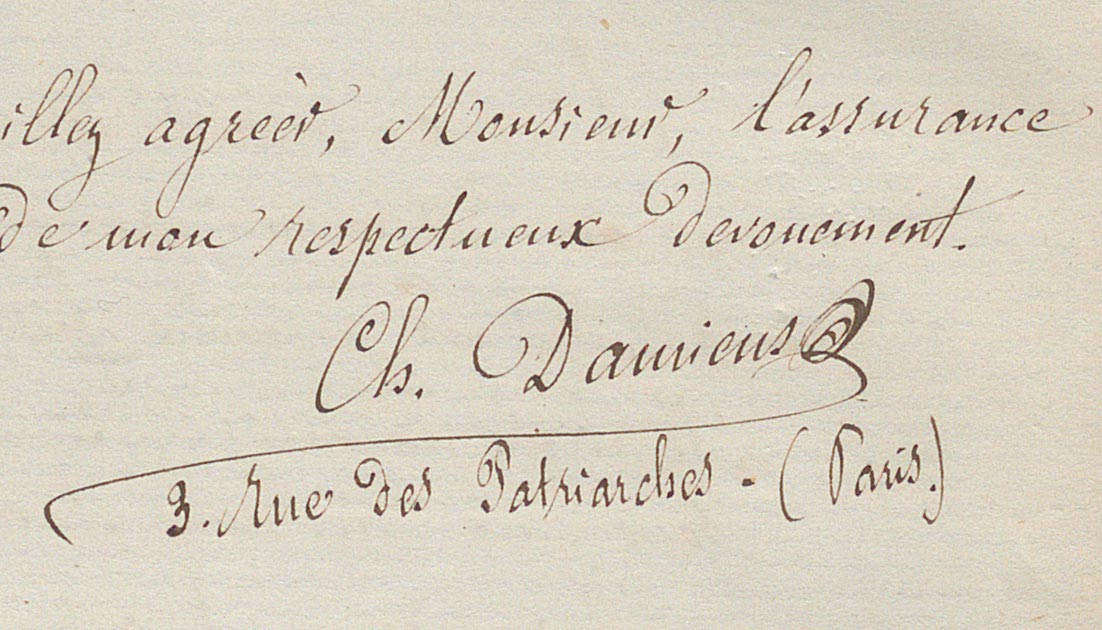 illez agréer, Monsieur, l'assurance
de mon respectueux devouement.
Ch. Damiens
3. Rue des Patriarches - (Paris.)